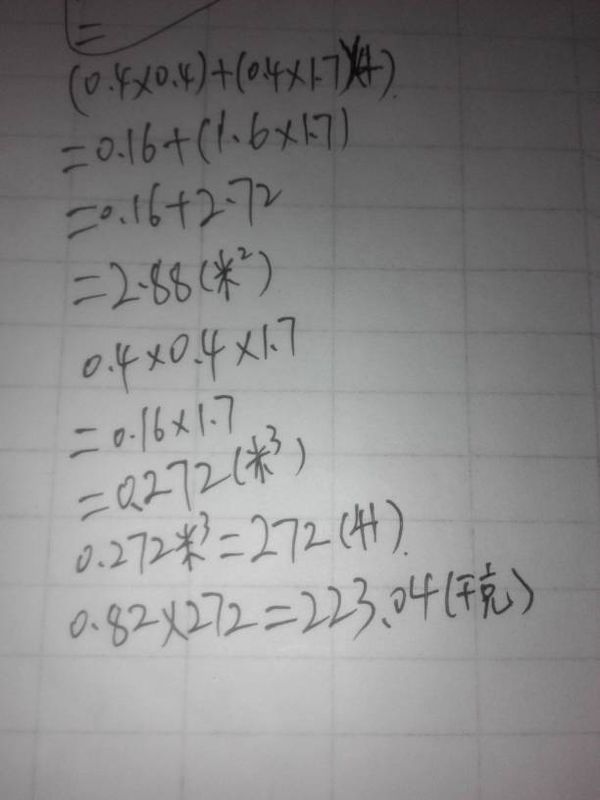 =
(0.4×0.4)+(0.4×1.7)×4)
=0.16+(1.6×1.7)
=0.16+2.72
=2.88(米²)
0.4×0.4×1.7
=0.16×1.7
=0.272(米³)
0.272米³=272(升)
0.82×272=223.04(千克)